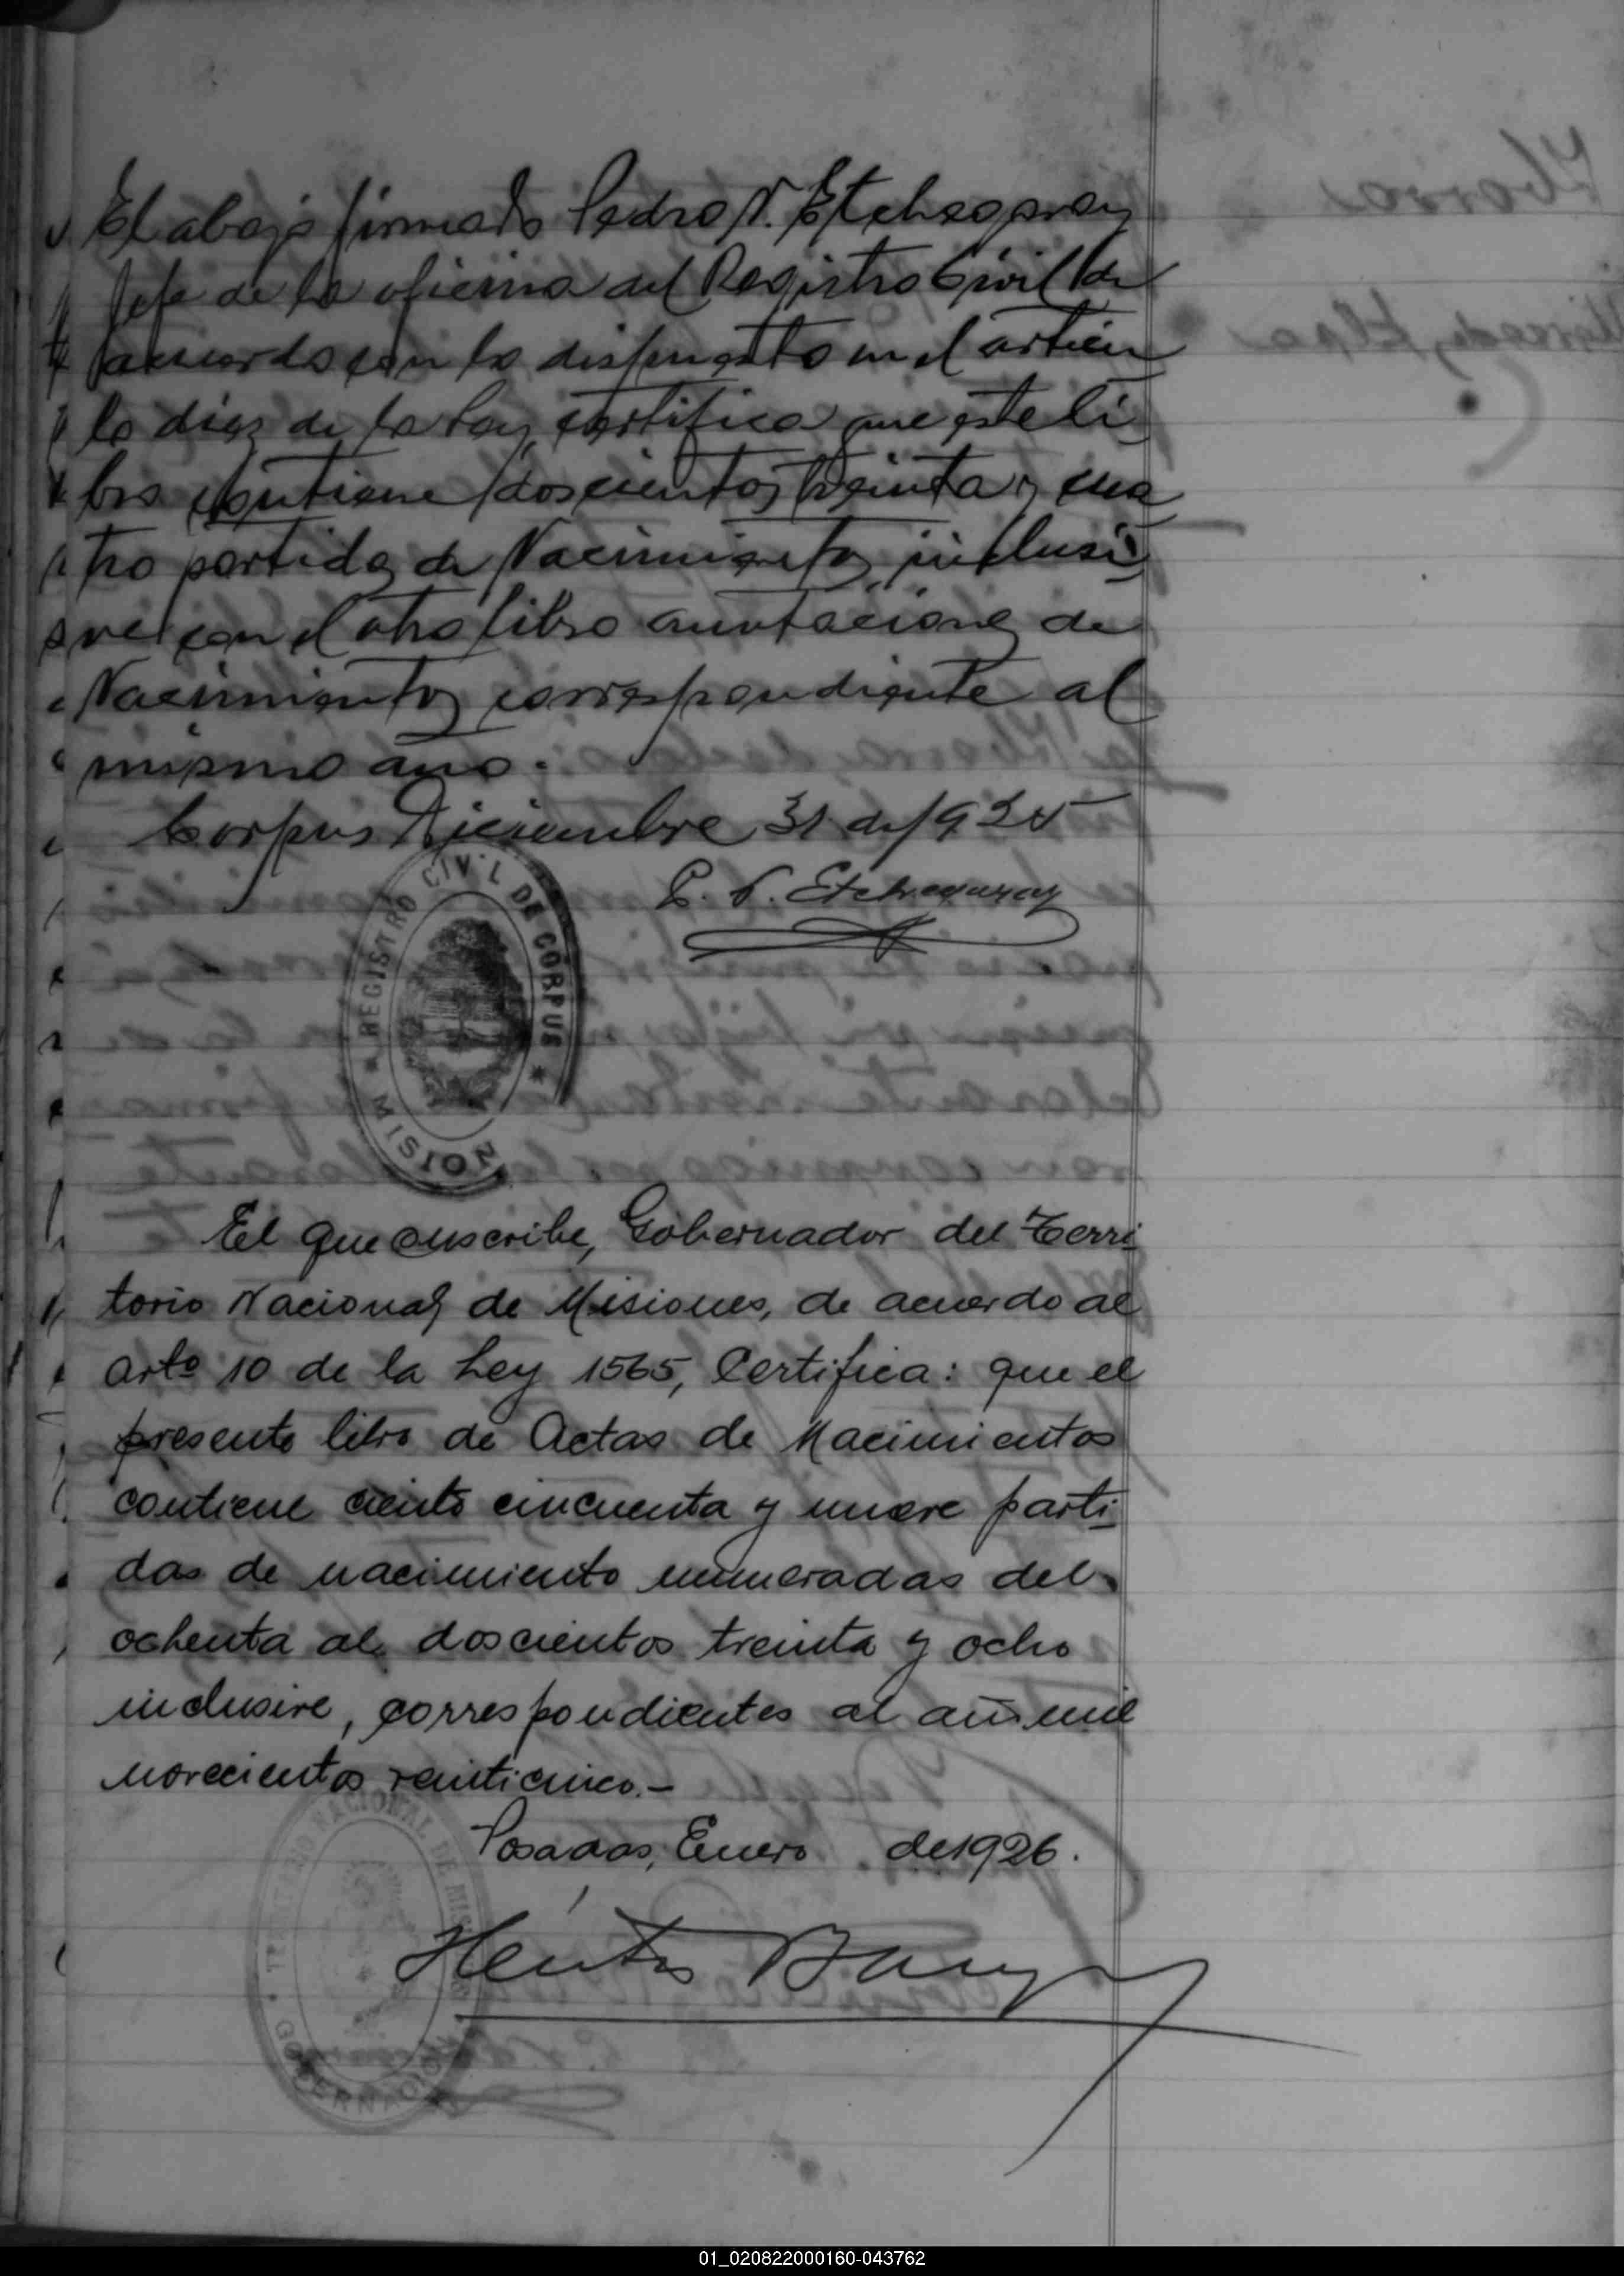 El abajo firmado Pedro N. Etchegaray
Jefe de la oficina del Registro Civil de
acuerdo con lo dispuesto en el articu
lo diez de la Ley certifica que este li
bro contiene doscientos treinta y cua
tro partidas de Nacimientos inclusi
ve con el otro libro anotaciones de
Nacimientos correspondiente al
mismo año.
Corpus Diciembre 31 de 1925
P. N. Etchegaray
REGISTRO CIVIL DE CORPUS
MISIONES
El que suscribe, Gobernador del Terri
torio Nacional de Misiones, de acuerdo al
arto 10 de la Ley 1565, Certifica: que el
presente libro de Actas de Nacimientos
contiene ciento cincuenta y nueve parti
das de nacimiento enumeradas del
ochenta al doscientos treinta y ocho
inclusive, correspondientes al año mil
novecientos veinticinco.-
Posadas, Enero de 1926.
Héctor Barreyro
TERRITORIO NACIONAL DE MISIONES
GOBERNACION
01_020822000160-043762